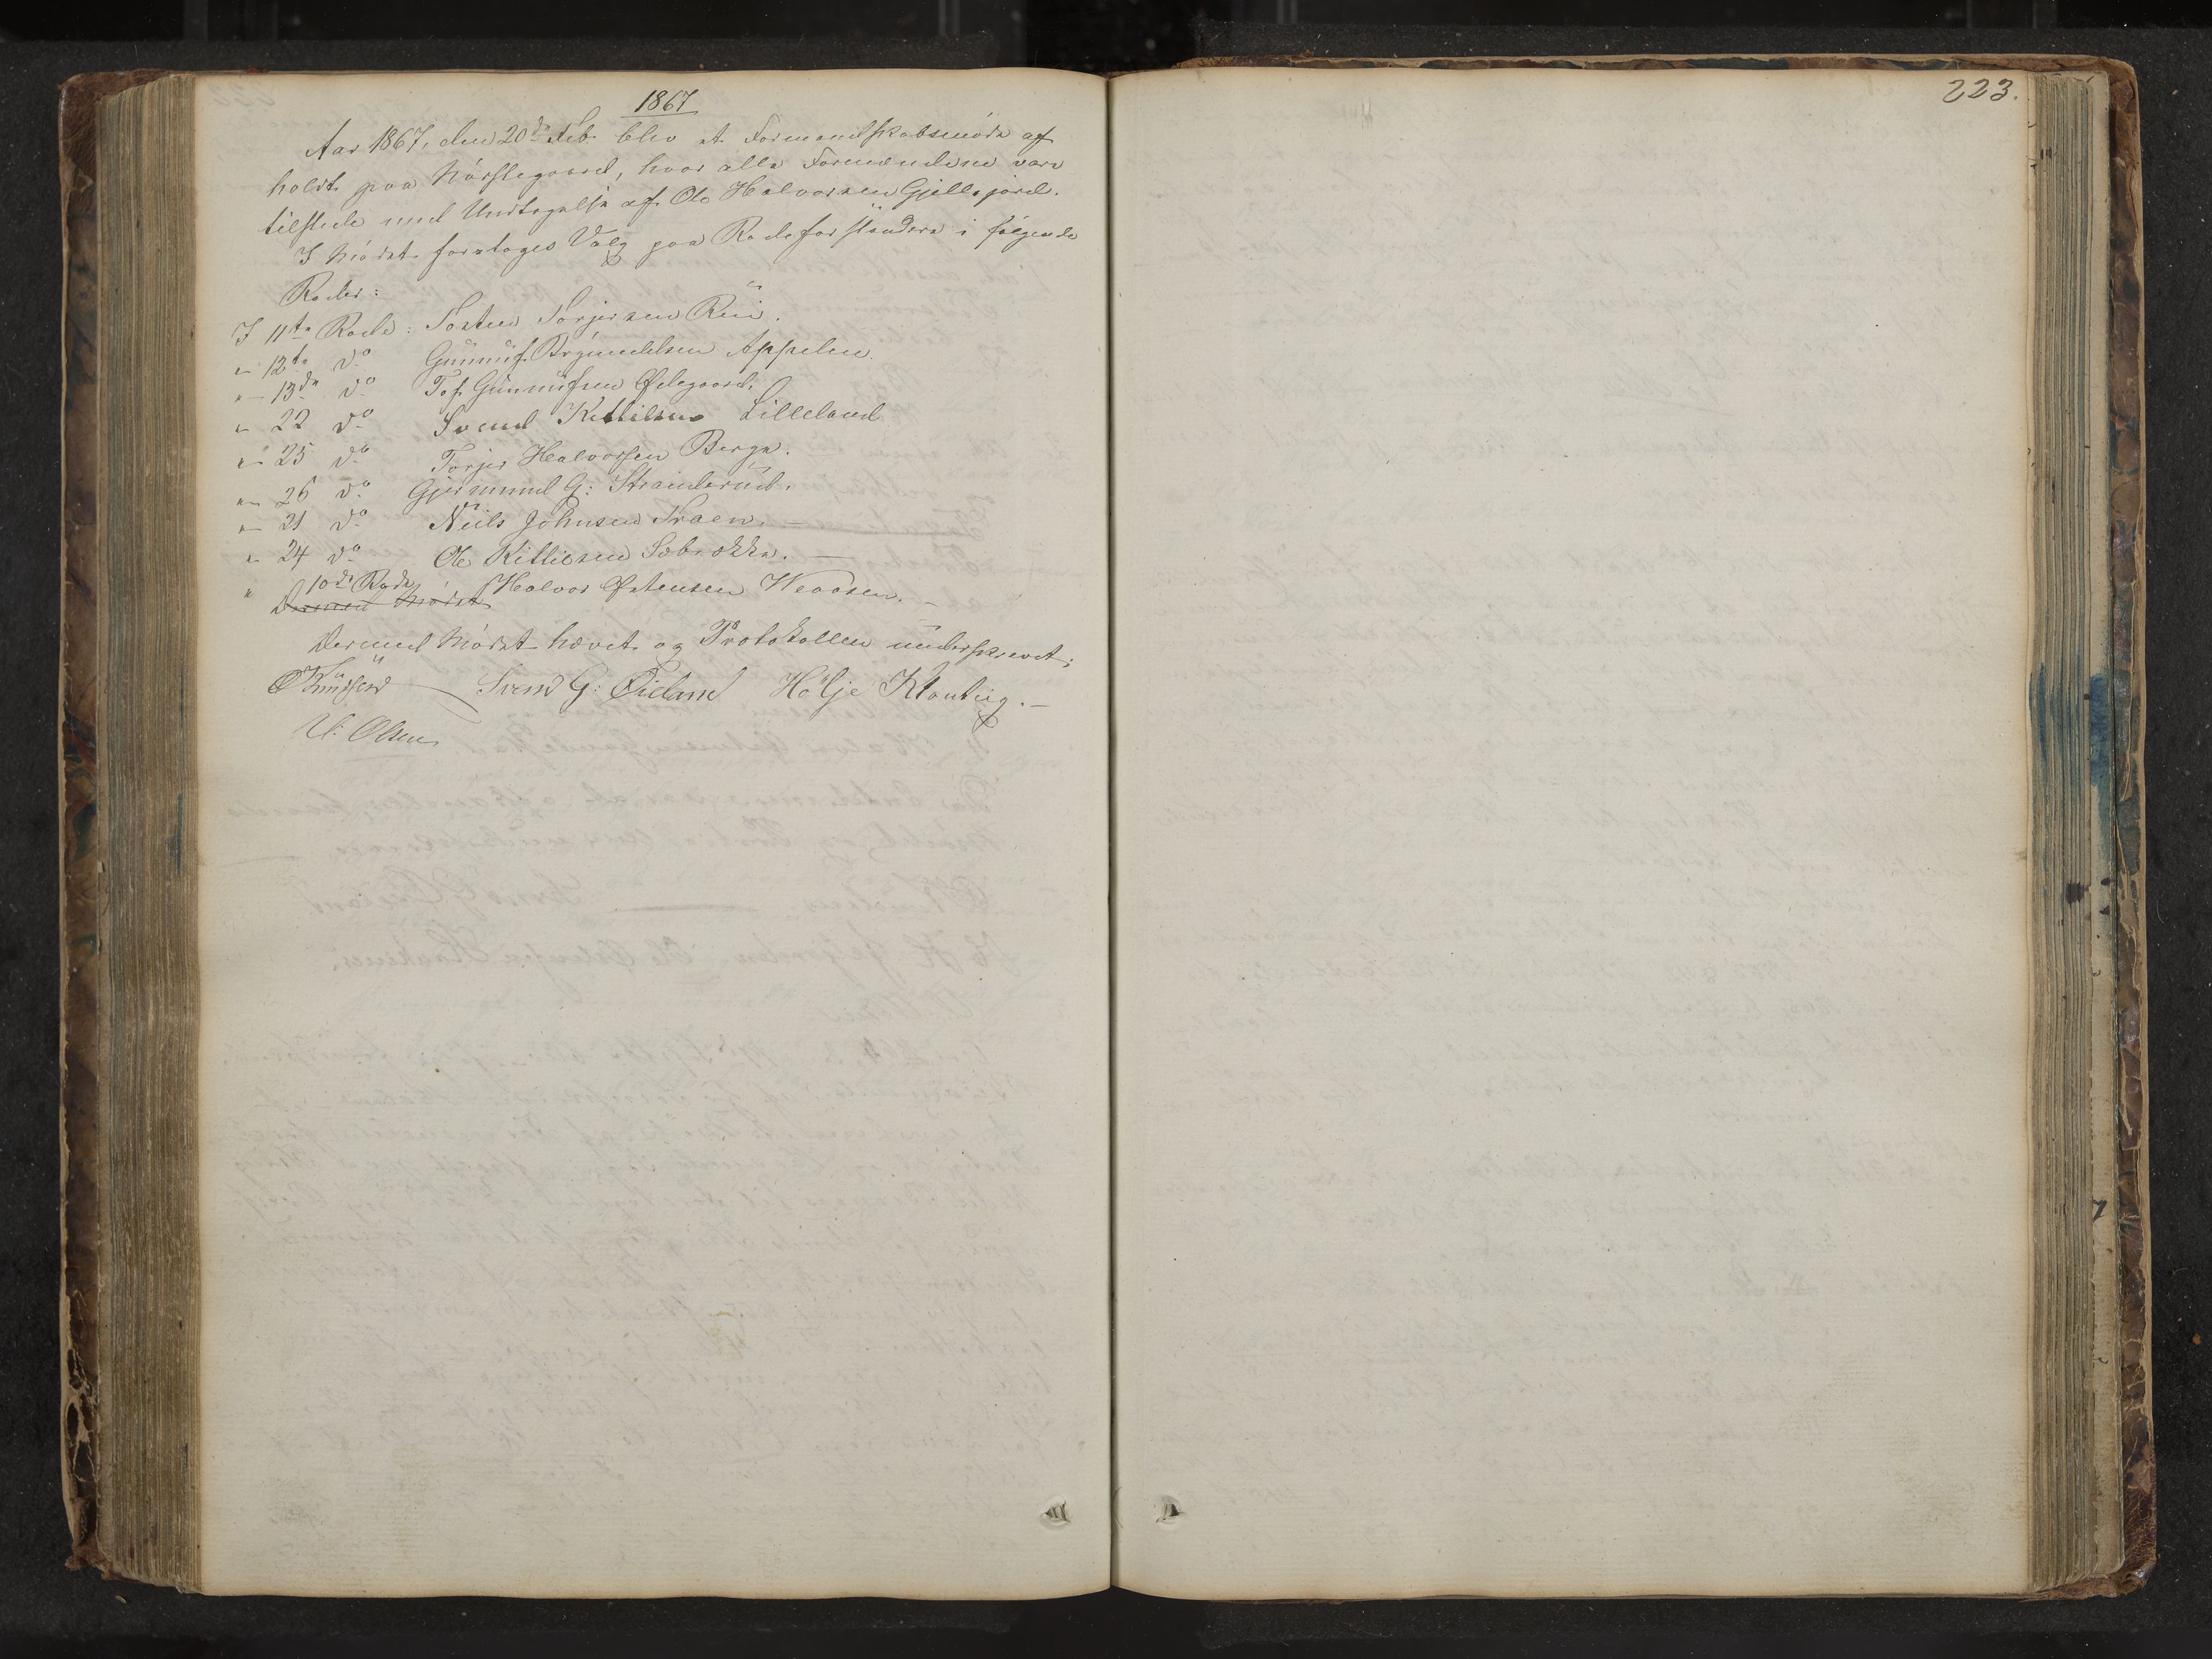 1867
Aar 1867, den 20de Feb. blev et Formandskabsmöde af
holdt paa Mörstegaard, hvor alle Formændene vare
tilstede med Undtagelse af Ole Halvorsen Gjellejord.
I Mödet foretoges Valg paa Rodeforstandere i fölgende
Roder:
I 11te Rode: Sosten Torjersen Rui.
" 12te do Gunnuf Brynuldsen Appelen.
" 13de do Tof Gunnufsen Ødegaard.
" 22 do Svend Kittilsen Lilleland
" 25 do Torjer Halvorsen Berge.
" 26 do Gjermund G: Stranderud.
" 21 do Neils Johnsen Traen.
" 24 do Ole Kittilsen Sebrekke.
" 10de Rode Halvor Østensen Weaasen.
Dermed Mödet
Dermed Mödet hævet og Protokollen underskrevet;
O Knudsen Svend G: Øieland Hölje Klonteig.
U. Olsen
223.